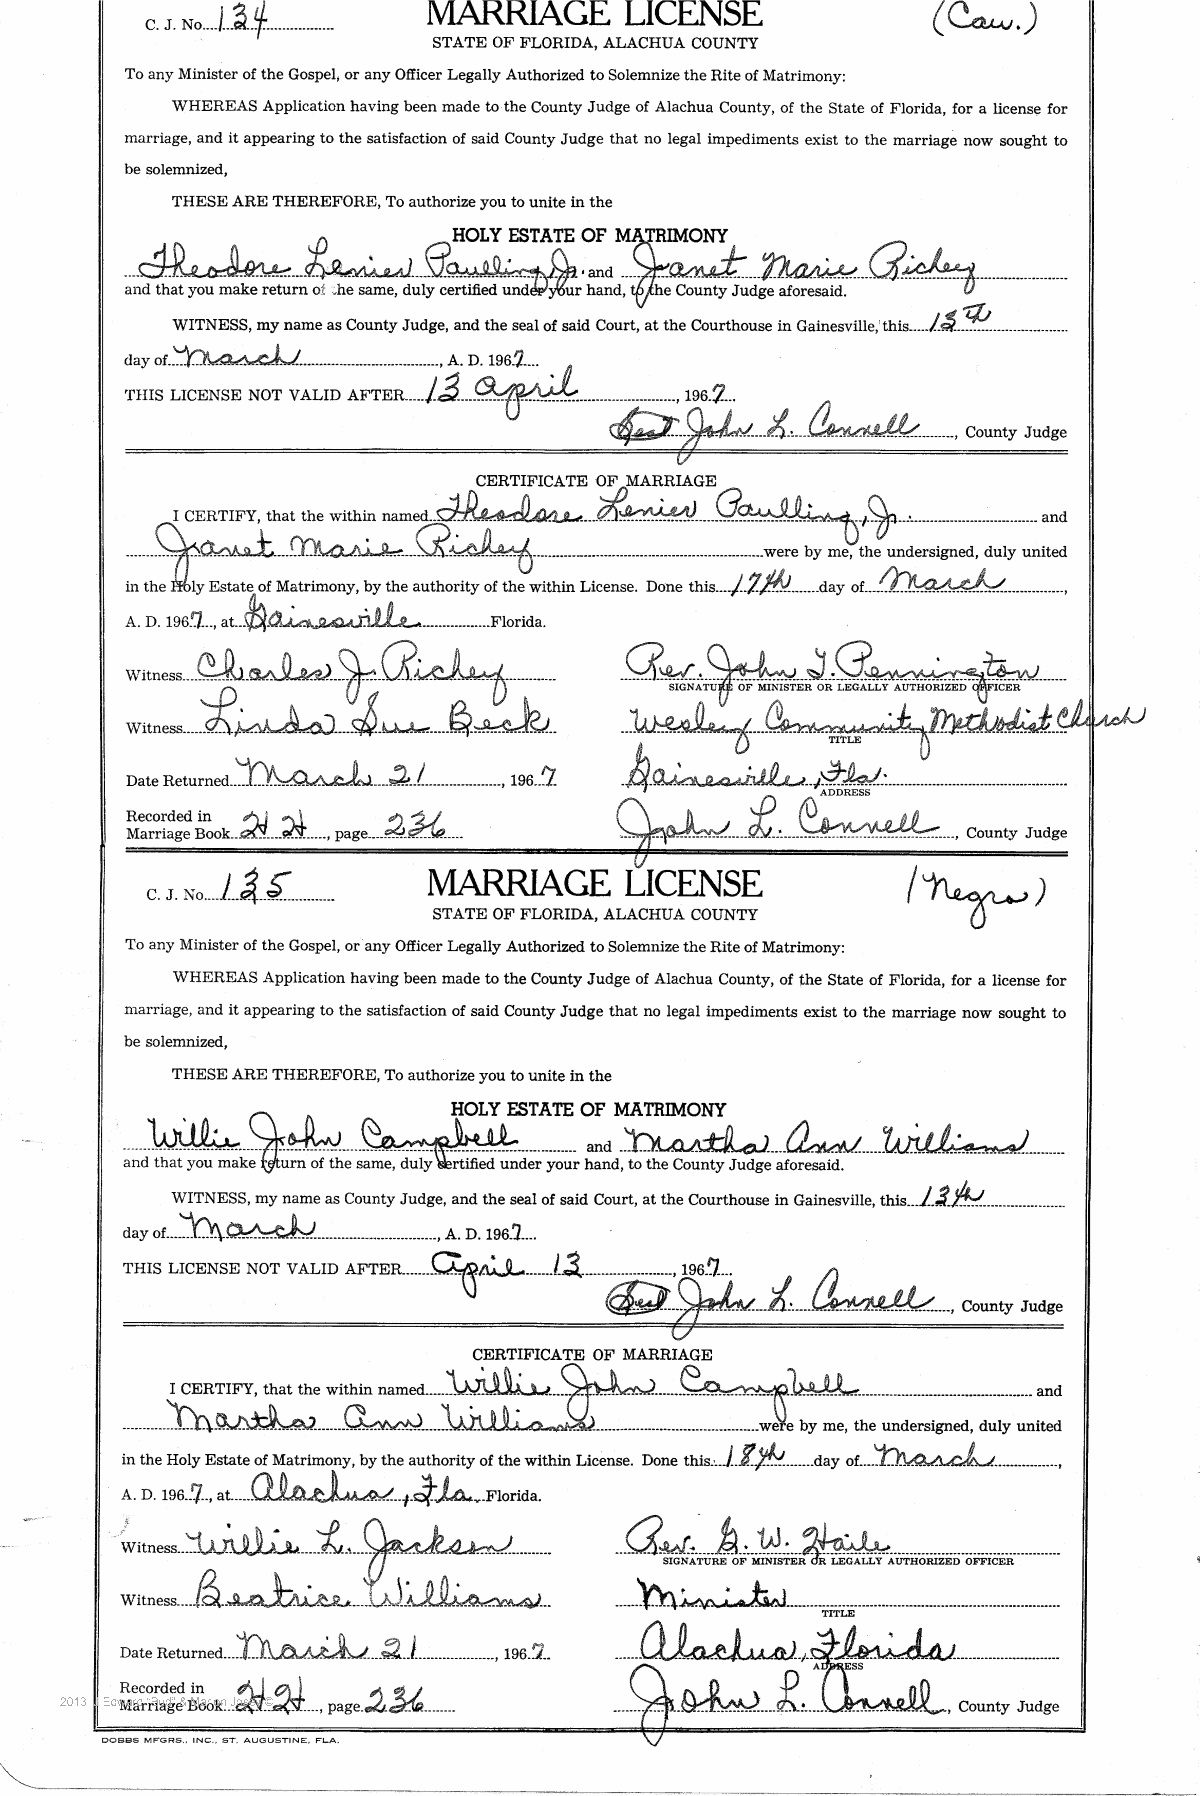 C. J. No. 134 MARRIAGE LICENSE (Cau.)
STATE OF FLORIDA, ALACHUA COUNTY
To any Minister of the Gospel, or any Officer Legally Authorized to Solemnize the Rite of Matrimony:
WHEREAS Application having been made to the County Judge of Alachua County, of the State of Florida, for a license for
marriage, and it appearing to the satisfaction of said County Judge that no legal impediments exist to the marriage now sought to
be solemnized,
THESE ARE THEREFORE, To authorize you to unite in the
HOLY ESTATE OF MATRIMONY
Theodore Lenier Paulling, Jr. and Janet Marie Richey
and that you make return of the same, duly certified under your hand, to the County Judge aforesaid.
WITNESS, my name as County Judge, and the seal of said Court, at the Courthouse in Gainesville, this 13th
day of March, A. D. 1967
THIS LICENSE NOT VALID AFTER 13 April, 1967
Seal John L. Connell, County Judge
CERTIFICATE OF MARRIAGE
I CERTIFY, that the within named Theodore Lenier Paulling, Jr. and
Janet Marie Richey were by me, the undersigned, duly united
in the Holy Estate of Matrimony, by the authority of the within License. Done this 17th day of March,
A. D. 1967, at Gainesville Florida.
Witness Charles J. Richey Rev. John T. Pennington
SIGNATURE OF MINISTER OR LEGALLY AUTHORIZED OFFICER
Witness Linda Sue Beck Wesley Community Methodist Church
TITLE
Date Returned March 21, 1967 Gainesville, Fla.
ADDRESS
Recorded in
Marriage Book 22, page 236 John L. Connell, County Judge
C. J. No. 135 MARRIAGE LICENSE (Negro)
STATE OF FLORIDA, ALACHUA COUNTY
To any Minister of the Gospel, or any Officer Legally Authorized to Solemnize the Rite of Matrimony:
WHEREAS Application having been made to the County Judge of Alachua County, of the State of Florida, for a license for
marriage, and it appearing to the satisfaction of said County Judge that no legal impediments exist to the marriage now sought to
be solemnized,
THESE ARE THEREFORE, To authorize you to unite in the
HOLY ESTATE OF MATRIMONY
Willie John Campbell and Martha Ann Williams
and that you make return of the same, duly certified under your hand, to the County Judge aforesaid.
WITNESS, my name as County Judge, and the seal of said Court, at the Courthouse in Gainesville, this 13th
day of March, A. D. 1967
THIS LICENSE NOT VALID AFTER April 13, 1967
Seal John L. Connell, County Judge
CERTIFICATE OF MARRIAGE
I CERTIFY, that the within named Willie John Campbell and
Martha Ann Williams were by me, the undersigned, duly united
in the Holy Estate of Matrimony, by the authority of the within License. Done this 18th day of March,
A. D. 1967, at Alachua, Fla. Florida.
Witness Willie L. Jackson Rev. G. W. Haile
SIGNATURE OF MINISTER OR LEGALLY AUTHORIZED OFFICER
Witness Beatrice Williams Minister
TITLE
Date Returned March 21, 1967 Alachua, Florida
ADDRESS
Recorded in
Marriage Book, page 236 John L. Connell, County Judge
2013
DOBBS MFGRS., INC., ST. AUGUSTINE, FLA.